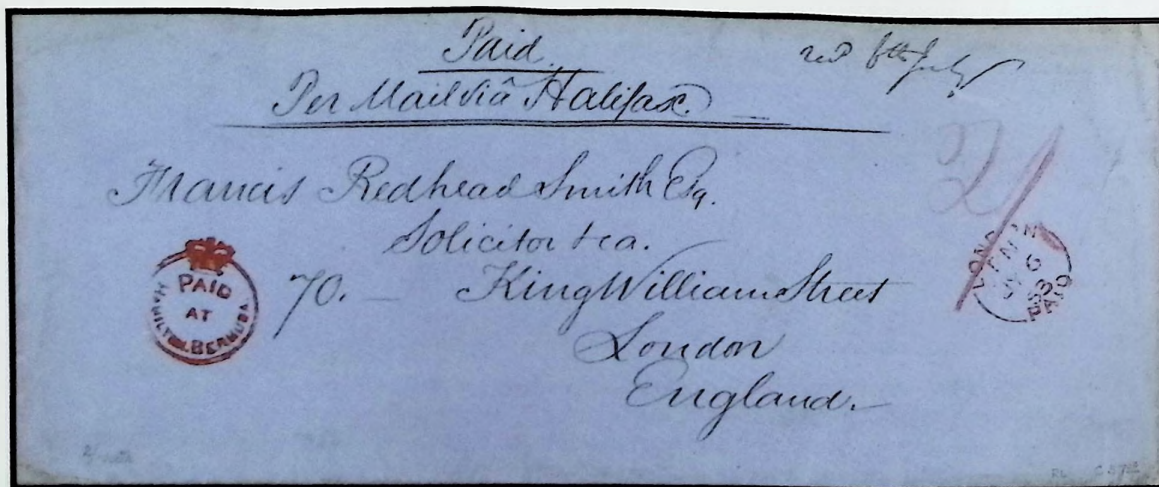 Paid.
recd 6th July
Per Mail viâ Halifax.
2/
Francis Redhead Smith Esq.
Solicitor &ca.
70. — King William Street
London
England.
PAID
AT
HAMILTON. BERMUDA
LONDON
6
53
PAID